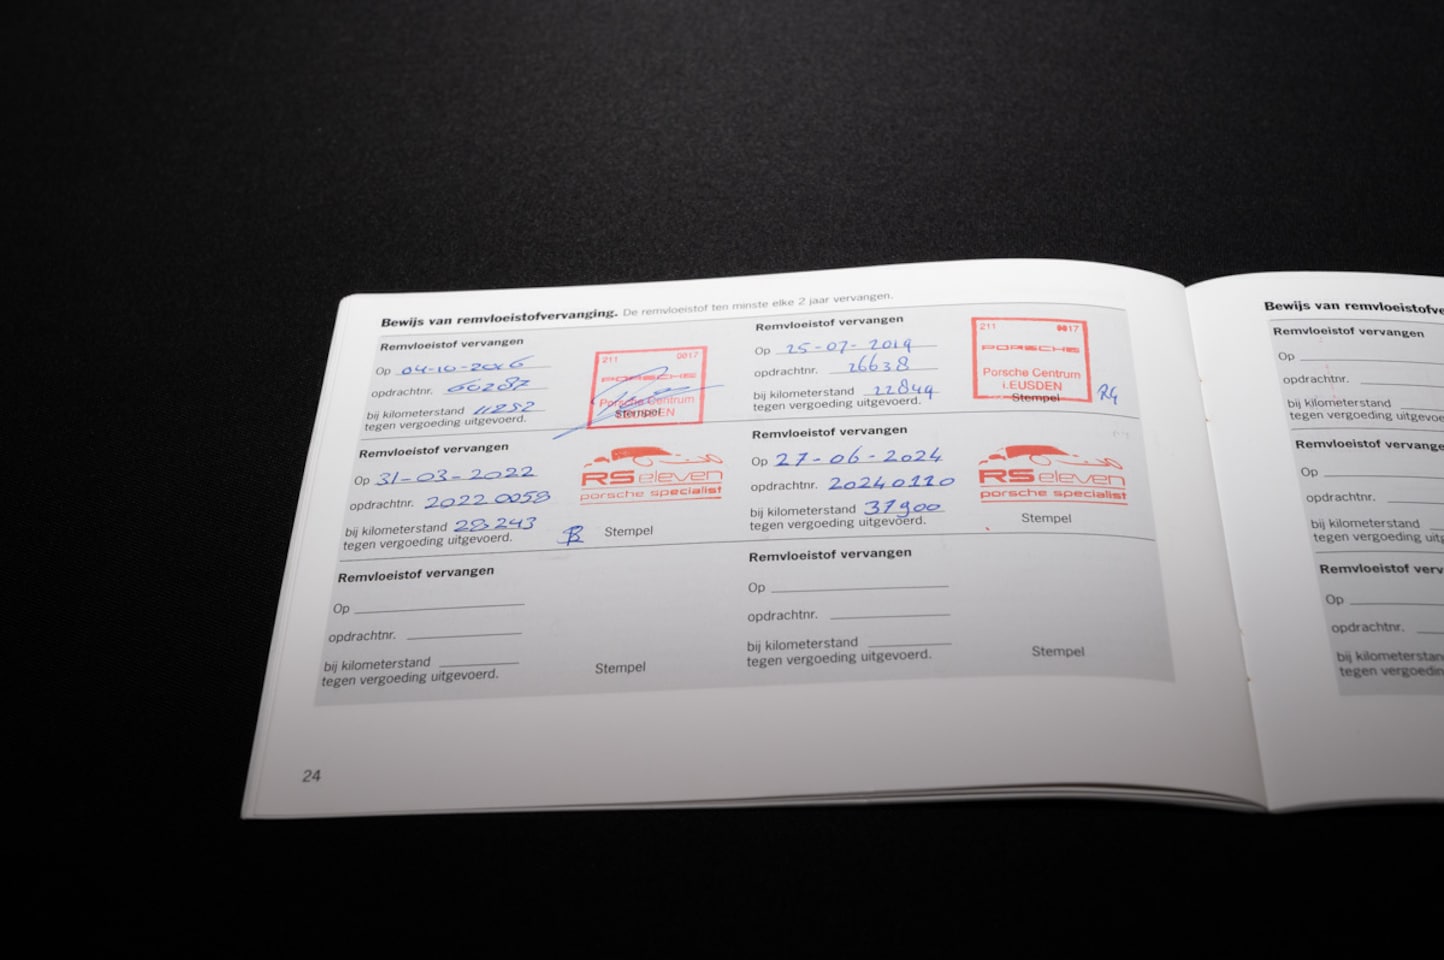 Bewijs van remvloeistofvervanging. De remvloeistof ten minste elke 2 jaar vervangen.
Remvloeistof vervangen
Op 04-10-2016
opdrachtnr. 60287
bij kilometerstand 11252
tegen vergoeding uitgevoerd.
211 0017
PORSCHE
Porsche Centrum
Stempel
Remvloeistof vervangen
Op 25-07-2019
opdrachtnr. 26638
bij kilometerstand 22849
tegen vergoeding uitgevoerd.
211 0017
PORSCHE
Porsche Centrum
LEUSDEN
Stempel
Remvloeistof vervangen
Op 31-03-2022
opdrachtnr. 20220058
bij kilometerstand 28243
tegen vergoeding uitgevoerd.
RS eleven
porsche specialist
Stempel
Remvloeistof vervangen
Op 27-06-2024
opdrachtnr. 20240110
bij kilometerstand 37900
tegen vergoeding uitgevoerd.
RS eleven
porsche specialist
Stempel
Remvloeistof vervangen
Op
opdrachtnr.
bij kilometerstand
tegen vergoeding uitgevoerd.
Stempel
Remvloeistof vervangen
Op
opdrachtnr.
bij kilometerstand
tegen vergoeding uitgevoerd.
Stempel
24
Bewijs van remvloeistofve
Remvloeistof vervangen
Op
opdrachtnr.
bij kilometerstand
tegen vergoeding uitgevoe
Remvloeistof vervange
Op
opdrachtnr.
bij kilometerstand
tegen vergoeding uitg
Remvloeistof verv
Op
opdrachtnr.
bij kilometerstan
tegen vergoeding